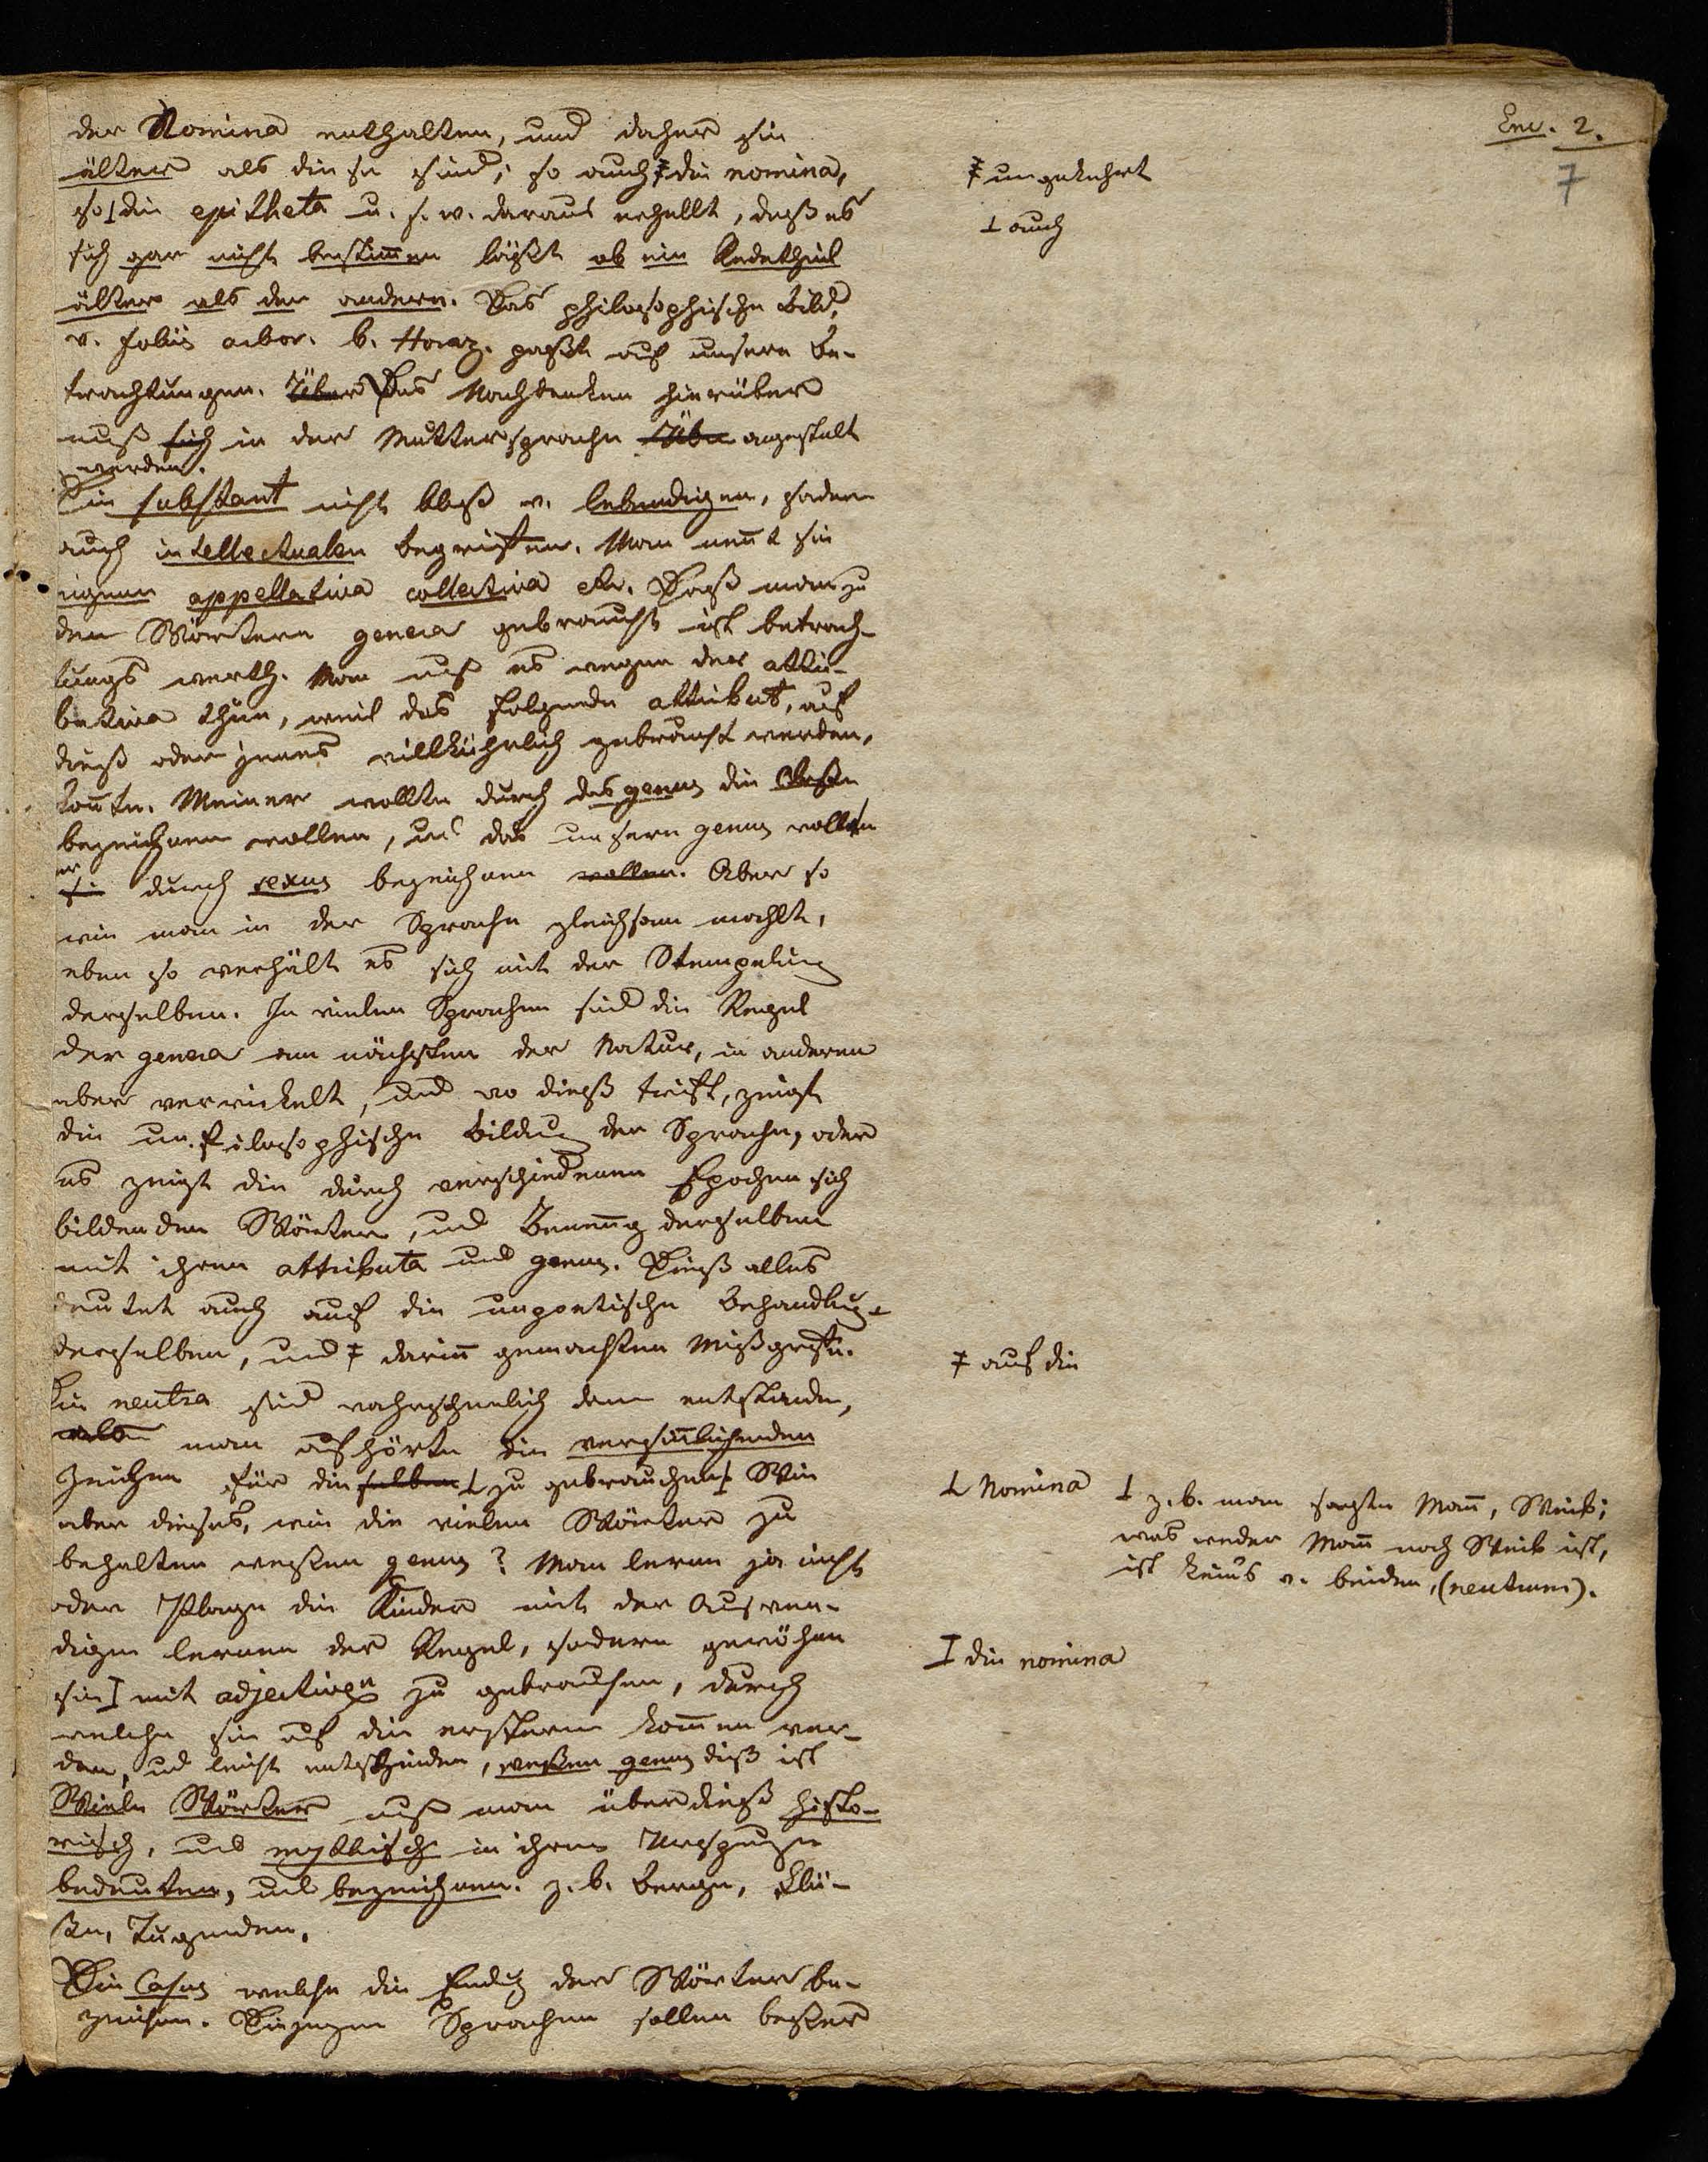 Enc. 2.
7
der Nomina enthalten, und daher sie
älter als diese sind; so auch ‡ die nomina,
so ⊥ die epitheta u. s. w. daraus erhellt, daß es
sich gar nicht bestim̄en läßt ob ein Redetheil
älter als der andere. Das philosophische Bild,
v. foliis arbor. b. Horaz. paßt auf unsere Be-
trachtungen. Über Das Nachdenken hierüber
muß sich in der Muttersprache Übe angestelt
werden.
Die substant nicht bloß v. lebendigen, sodern
auch intellectualen begriffen. Man nen̄t sie
eigene appellativa collectiva etc. Daß man zu
den Wörtern genera gebraucht ist betrach-
tungs werth. Man muß es wegen der attri-
butiva thun, weil das folgende attribut, auf
dieß oder jenes willkührlich gebraucht werden,
kon̄te. Meiner wollte durch das genus die
bezeichnen wollen, und das unsere genus wollte
er
sie durch sexus bezeichnen wollen. Aber so
wie man in der Sprache gleichsam mahlt,
eben so verhält es sich mit der Stempelung
derselben. In vielen Sprachen sind die Regel
der genera am nächsten der Natur, in anderen
aber verwickelt, und wo dieß trift, zeigt
die un.filosophische Bildung der Sprache, oder
es zeigt die durch verschiedenen Epochen sich
bildenden Wörter, und Benen̄ug derselben
mit ihren attributa und genus. Dieß alles
deutet auch auf die unpoetische Behandlug
derselben, und ‡ darin̄ gemachten Mißgriffe.
Die neutra sind wahrscheinlich dann entstanden,
man aufhörte die versin̄lichenden
Zeichen für die selben ⊥ zu gebrauchen ⊥ Wie
aber dieses, wie die vielen Wörter zu
behalten weßen genus? Man lerne ja nicht
oder Plage die Kinder mit der Auswen-
digen lernen der Regel, sodern gewöhne
sie I mit adjectiven zu gebrauchen, durch
welche sie auf die ersteren kom̄en wer-
den, und leicht entscheiden, weßen genus dieß ist
Viele Wörter muß man überdieß histo-
risch, und mythisch in ihrem Ursprunge
bedeuten, und bezeichnen. z. b. Berge, Flü-
ße, Tugenden.
Die Casus welche die Endug der Wörter be-
zeichnen. Diejenigen Sprachen sollen besser
‡ umgekehrt
⊥ auch
‡ auf die
⊥ Nomina
⊥ z. b. man sagte Man̄, Weib;
was weder Man̄ noch Weib ist,
ist keins v. beiden, (neutrum).
I die nomina